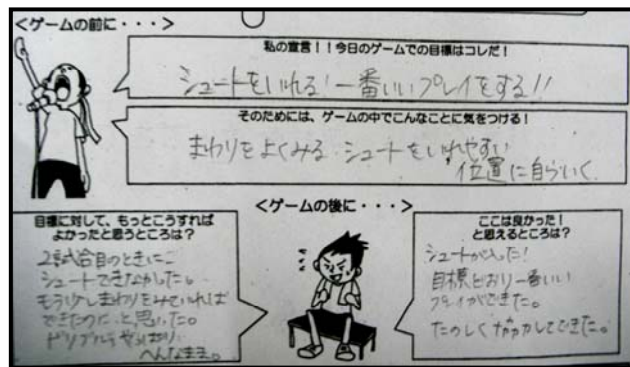 <ゲームの前に・・・>
私の宣言！！今日のゲームでの目標はコレだ！
シュートをいれる！一番いいプレイをする！！
そのためには、ゲームの中でこんなことに気をつける！
まわりをよくみる シュートをいれやすい
位置に自らいく
<ゲームの後に・・・>
目標に対して、もっとこうすれば
よかったと思うところは？
2試合目のときに
シュートできなかった。
もう少しまわりをみていれば
できたのに、と思った。
ドリブルもやっぱり
へんなまま。
ここは良かった！
と思えるところは？
シュートが入った！
目標どおり一番いい
プレイができた。
たのしくできた。